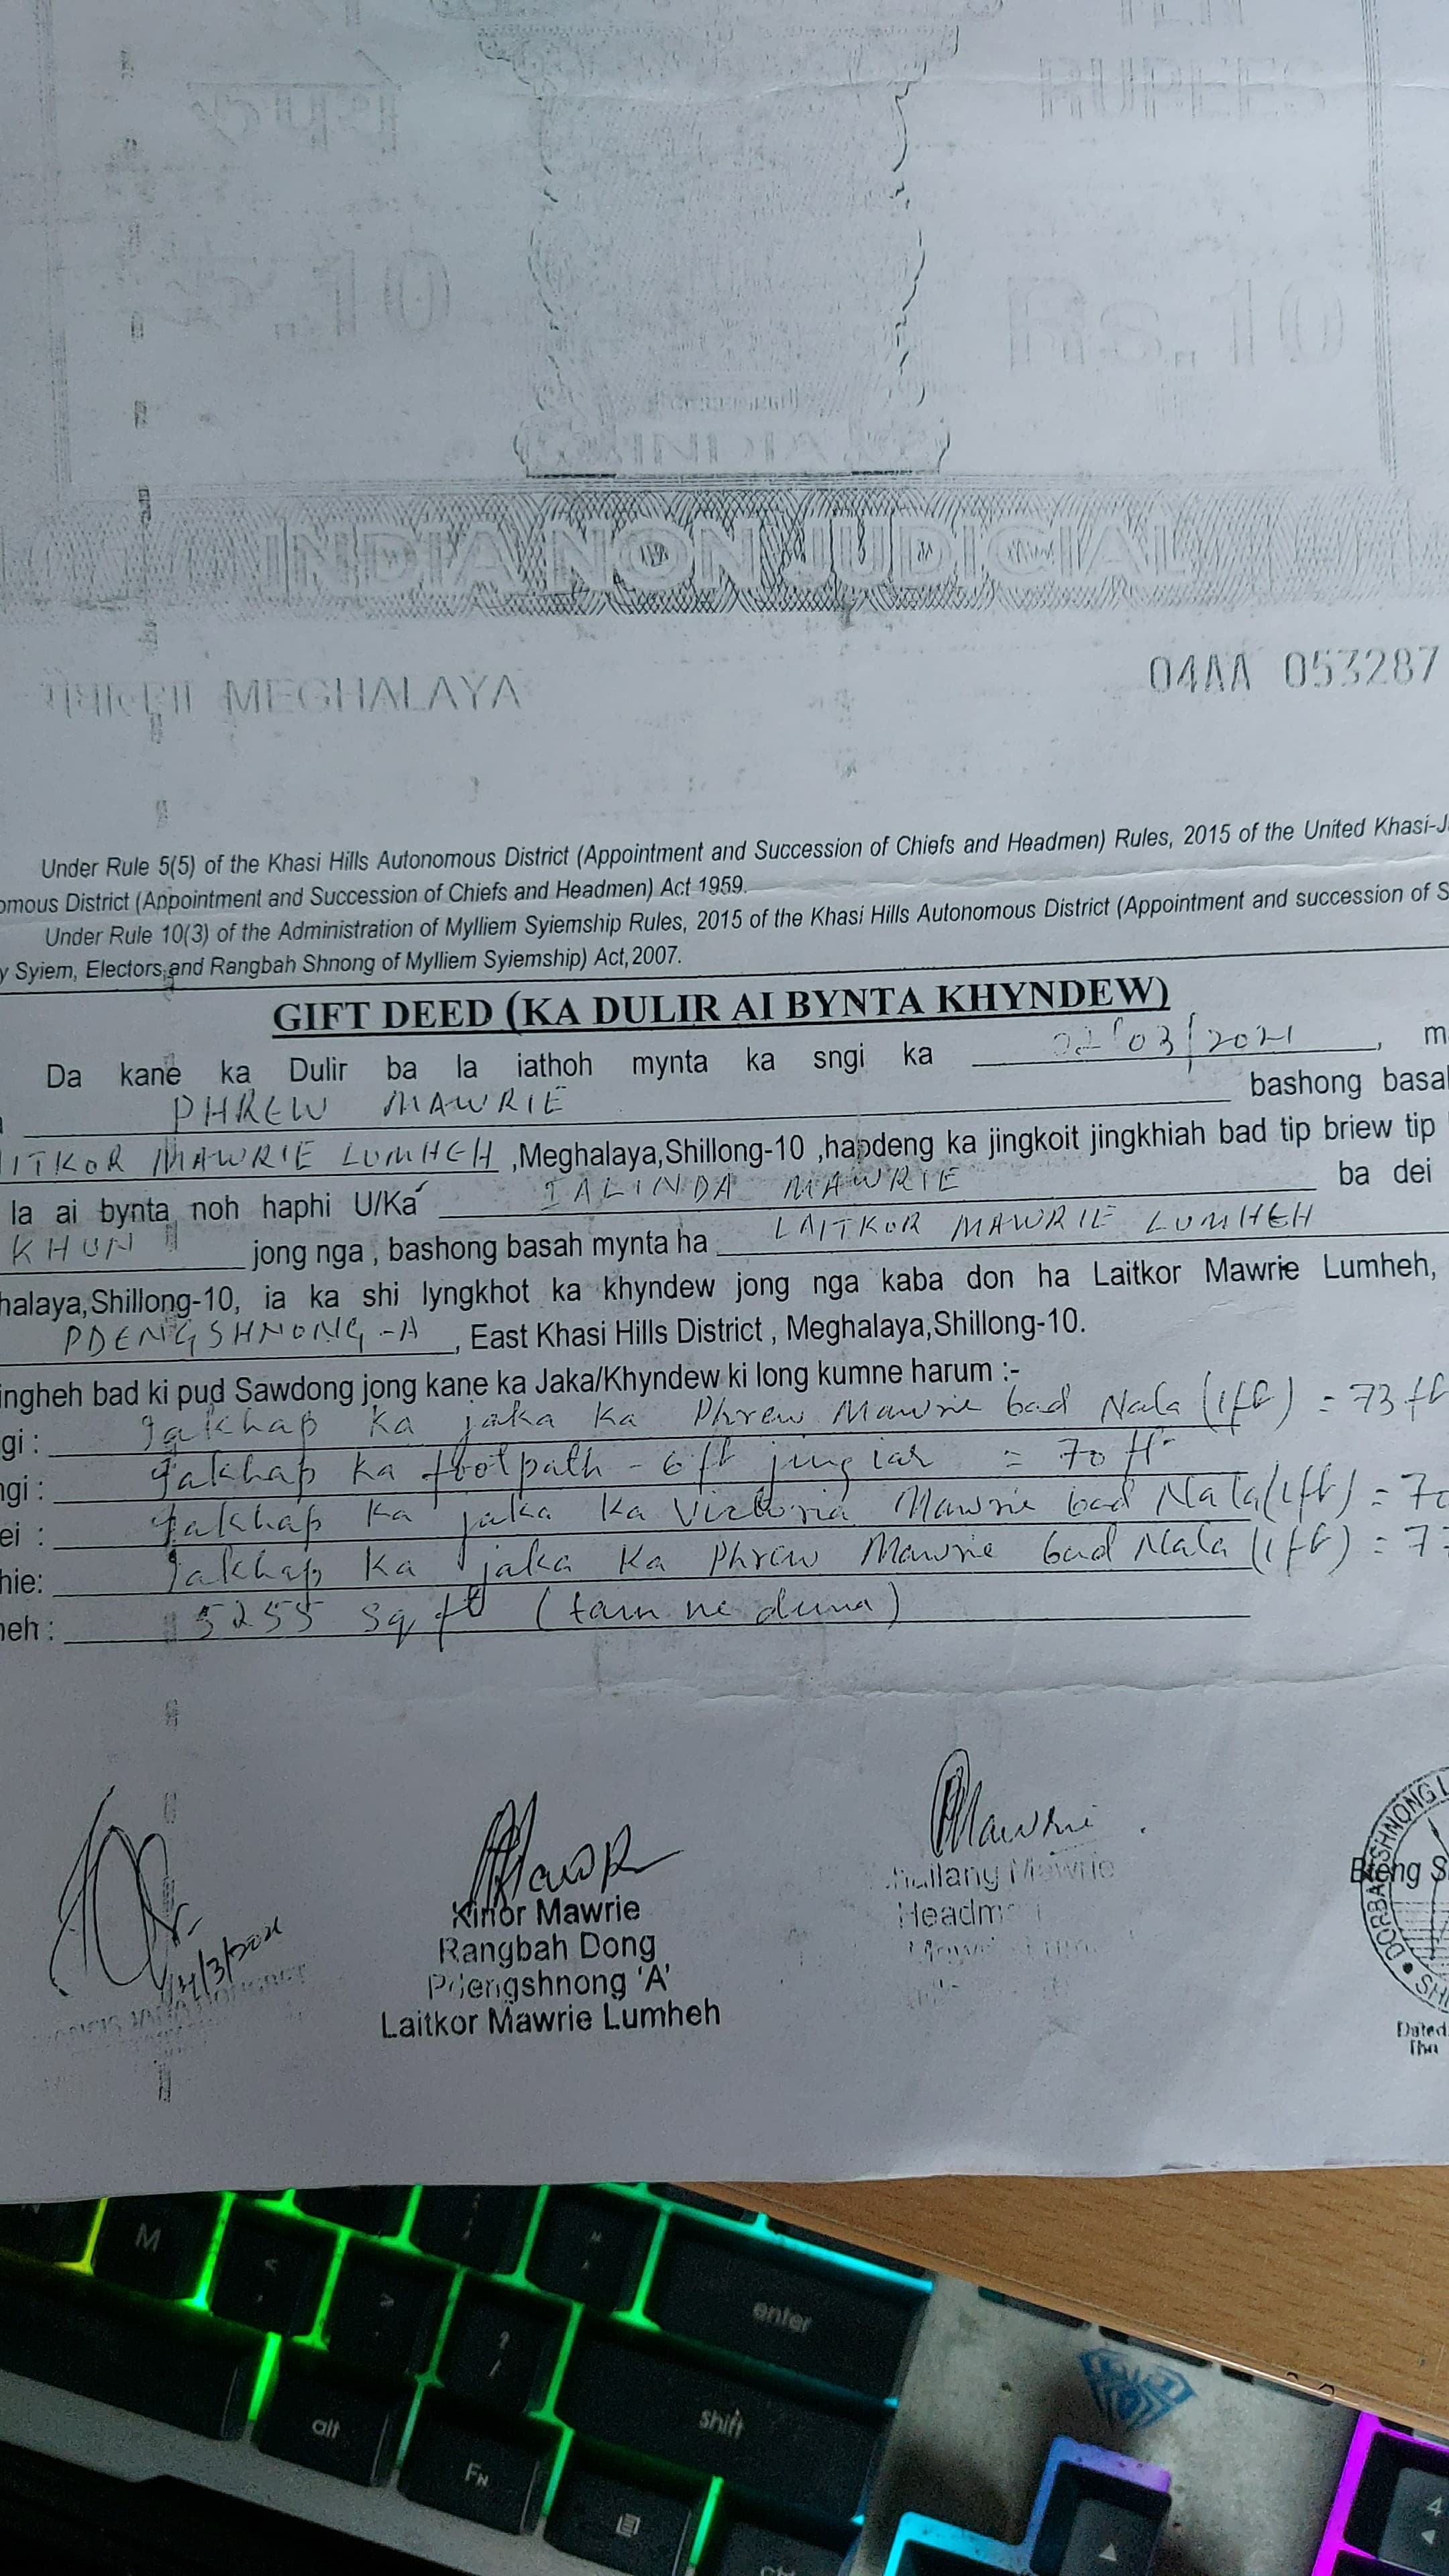 TEN
रुपये RUPEES
रु.10 Rs.10
INDIA
INDIA NON JUDICIAL
मेघालया MEGHALAYA
04AA 053287
Under Rule 5(5) of the Khasi Hills Autonomous District (Appointment and Succession of Chiefs and Headmen) Rules, 2015 of the United Khasi-J
omous District (Appointment and Succession of Chiefs and Headmen) Act 1959.
Under Rule 10(3) of the Administration of Mylliem Syiemship Rules, 2015 of the Khasi Hills Autonomous District (Appointment and succession of S
y Syiem, Electors and Rangbah Shnong of Mylliem Syiemship) Act, 2007.
GIFT DEED (KA DULIR AI BYNTA KHYNDEW)
Da kane ka Dulir ba la iathoh mynta ka sngi ka 02/03/2021, m
PHREW MAWRIE bashong basah
ITKOR MAWRIE LUMHEH ,Meghalaya,Shillong-10 ,hapdeng ka jingkoit jingkhiah bad tip briew tip
la ai bynta noh haphi U/Ka IALINDA MAWRIE ba dei
KHUN jong nga , bashong basah mynta ha LAITKOR MAWRIE LUMHEH
halaya,Shillong-10, ia ka shi lyngkhot ka khyndew jong nga kaba don ha Laitkor Mawrie Lumheh,
PDENGSHNONG-A , East Khasi Hills District , Meghalaya,Shillong-10.
ingheh bad ki pud Sawdong jong kane ka Jaka/Khyndew ki long kumne harum :-
gi : Jakhap ka jaka ka Phrew Mawrie bad Nala (1ft) = 73 ft
ngi : Jakhap ka footpath - 6 ft jingiar = 70 ft
ei : Jakhap ka jaka ka Victoria Mawrie bad Nala (1ft) = 70
hie: Jakhap ka jaka ka Phrew Mawrie bad Nala (1ft) = 7
heh : 5255 sq ft (tam ne duna)
Mawrie
Kinor Mawrie
Rangbah Dong
Pdengshnong 'A'
Laitkor Mawrie Lumheh
Mawrie
Headm
DORBAR SHNONG L
SH
Dated
M
<
,
>
.
?
/
enter
shift
alt
FN
4